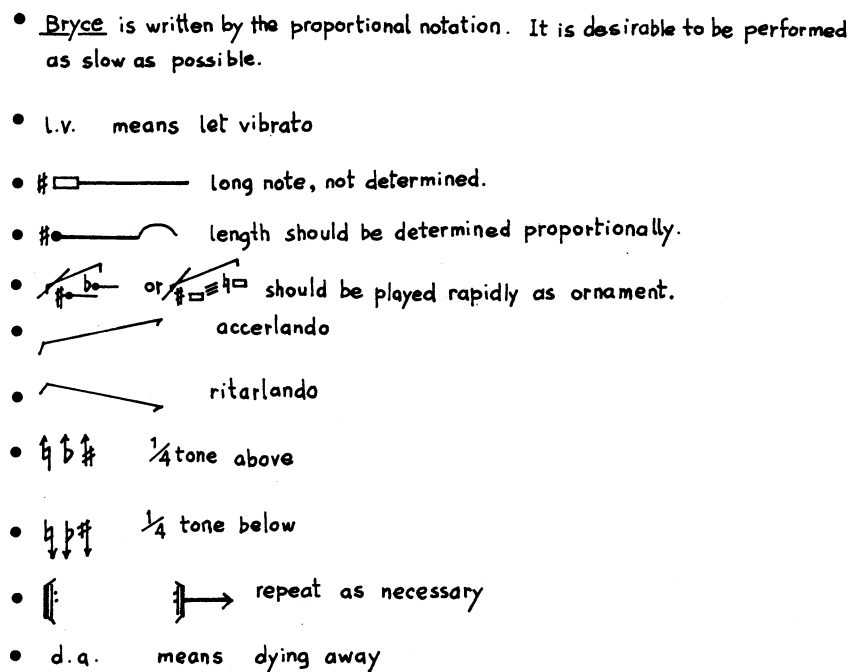 • Bryce is written by the proportional notation. It is desirable to be performed
as slow as possible.
• l.v. means let vibrato
• ♯ long note, not determined.
• ♯ length should be determined proportionally.
• ♯ ♭ or ♯ ♮ should be played rapidly as ornament.
• accerlando
• ritarlando
• ♮ ♭ ♯ 1/4 tone above
• ♮ ♭ ♯ 1/4 tone below
• repeat as necessary
• d.a. means dying away